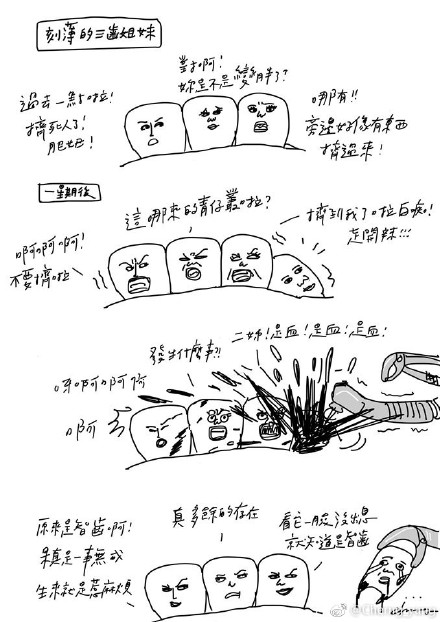 刻薄的三齒姐妹
過去一點啦!
擠死人了!
肥世!
對啊!
妳是不是變胖了?
哪有!!
旁邊好像有東西
擠過來!
一星期後
啊啊啊!
不要擠啦
這哪來的青仔叢啦?
擠到我了啦白痴!
走開妹!!!
呀啊啊啊
啊
發生什麼事!!
二姊!是血!是血!是血!
原來是智齒啊!
果真是一事無成
生來就是惹麻煩
真多餘的存在
看它一股沒出息
就知道是智齒